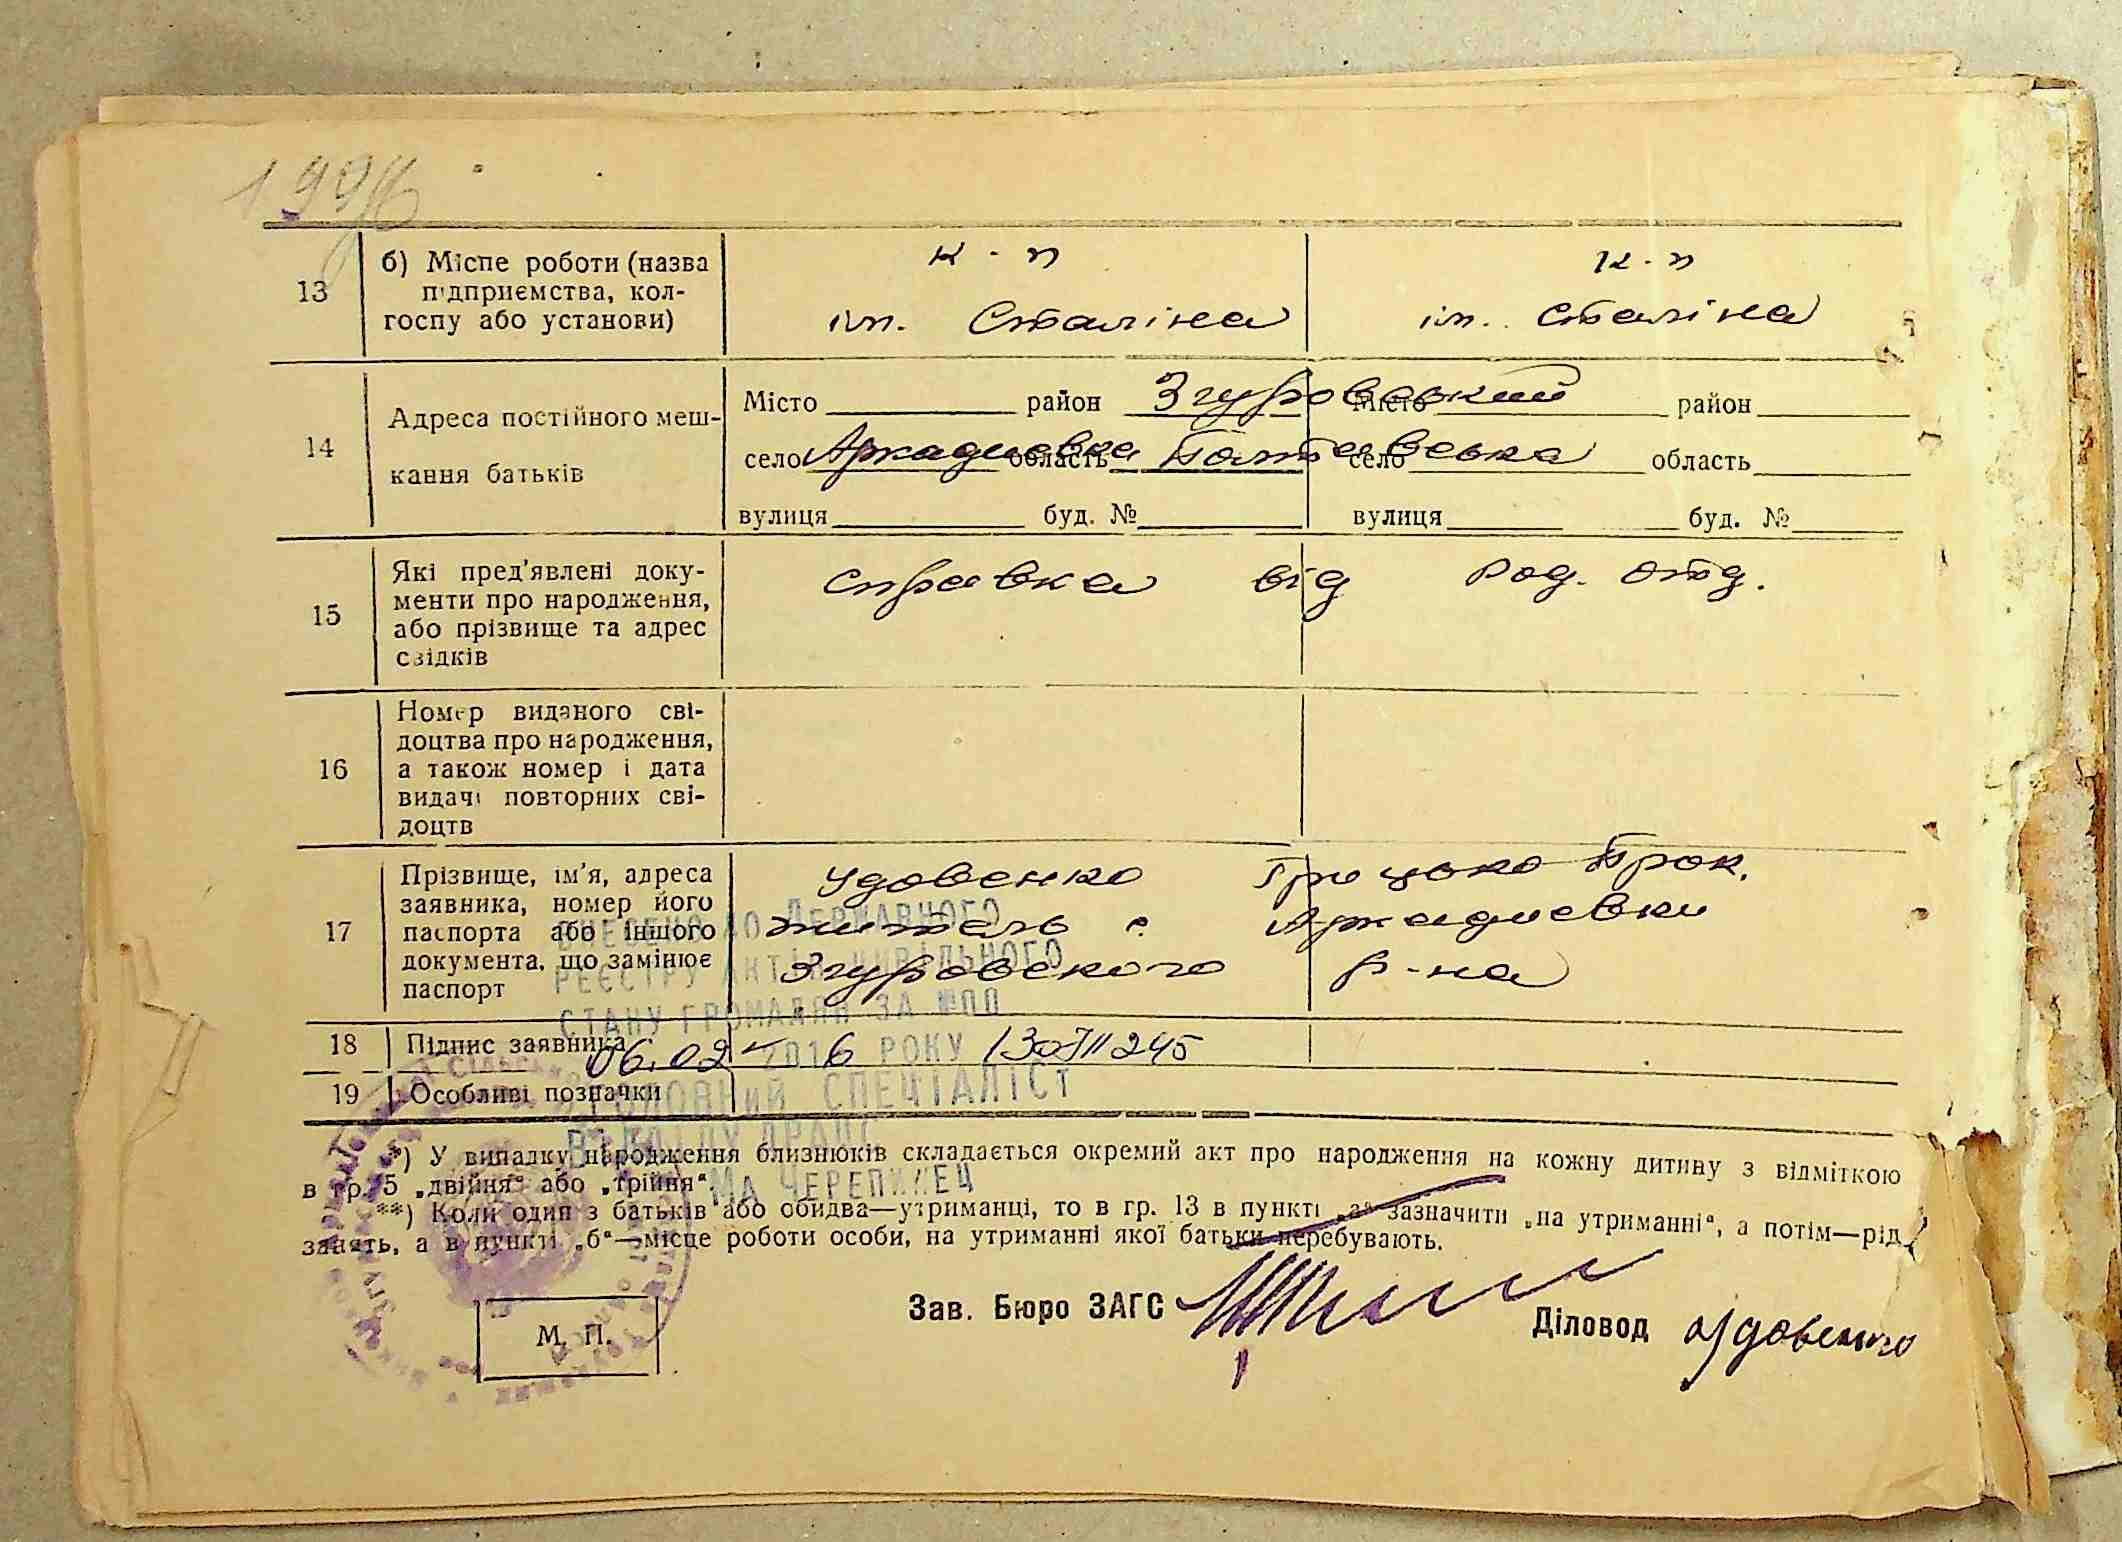 199
13
б) Місце роботи (назва
підприємства, кол-
госпу або установи)
к-п
ім. Сталіна
к-п
ім. Сталіна
14
Адреса постійного меш-
кання батьків
Місто район Згуровський Місто район
село Аркадиевка область Полтавська село область
вулиця буд. № вулиця буд. №
15
Які пред'явлені доку-
менти про народження,
або прізвище та адрес
свідків
справка від Род. отд.
16
Номер виданого сві-
доцтва про народження,
а також номер і дата
видачі повторних сві-
доцтв
17
Прізвище, ім'я, адреса
заявника, номер його
паспорта або іншого
документа, що замінює
паспорт
Удовенко Грицько Прок.
житель с. Аркадиевки
Згуровского р-на
ВНЕСЕНО ДО ДЕРЖАВНОГО
РЕЄСТРУ АКТІВ ЦИВІЛЬНОГО
СТАНУ ГРОМАДЯН ЗА №ПП
18 Підпис заявника
06.02 2016 РОКУ
19 Особливі позначки
ГОЛОВНИЙ СПЕЦІАЛІСТ
ВІДДІЛУ ДРАЦС
МА ЧЕРЕПИНЕЦ
*) У випадку народження близнюків складається окремий акт про народження на кожну дитину з відміткою
в гр. 5 „двійня“ або „трійня“.
**) Коли один з батьків або обидва—утриманці, то в гр. 13 в пункті „а“ зазначити „на утриманні“, а потім—рід
занять, а в пункті „б“—місце роботи особи, на утриманні якої батьки перебувають.
Зав. Бюро ЗАГС
Діловод Удовенко
М. П.